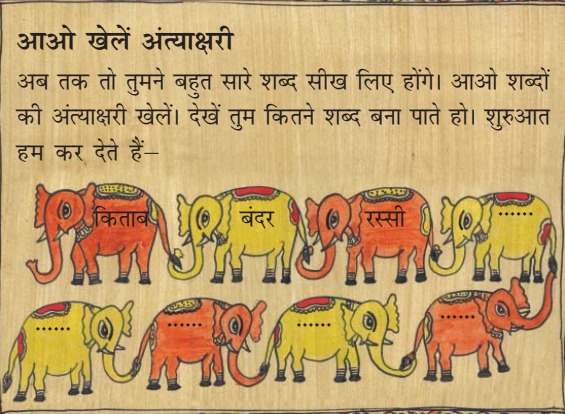 आओ खेलें अंत्याक्षरी
अब तक तो तुमने बहुत सारे शब्द सीख लिए होंगे। आओ शब्दों
की अंत्याक्षरी खेलें। देखें तुम कितने शब्द बना पाते हो। शुरुआत
हम कर देते हैं–
किताब बंदर रस्सी ......
...... ...... ...... ......